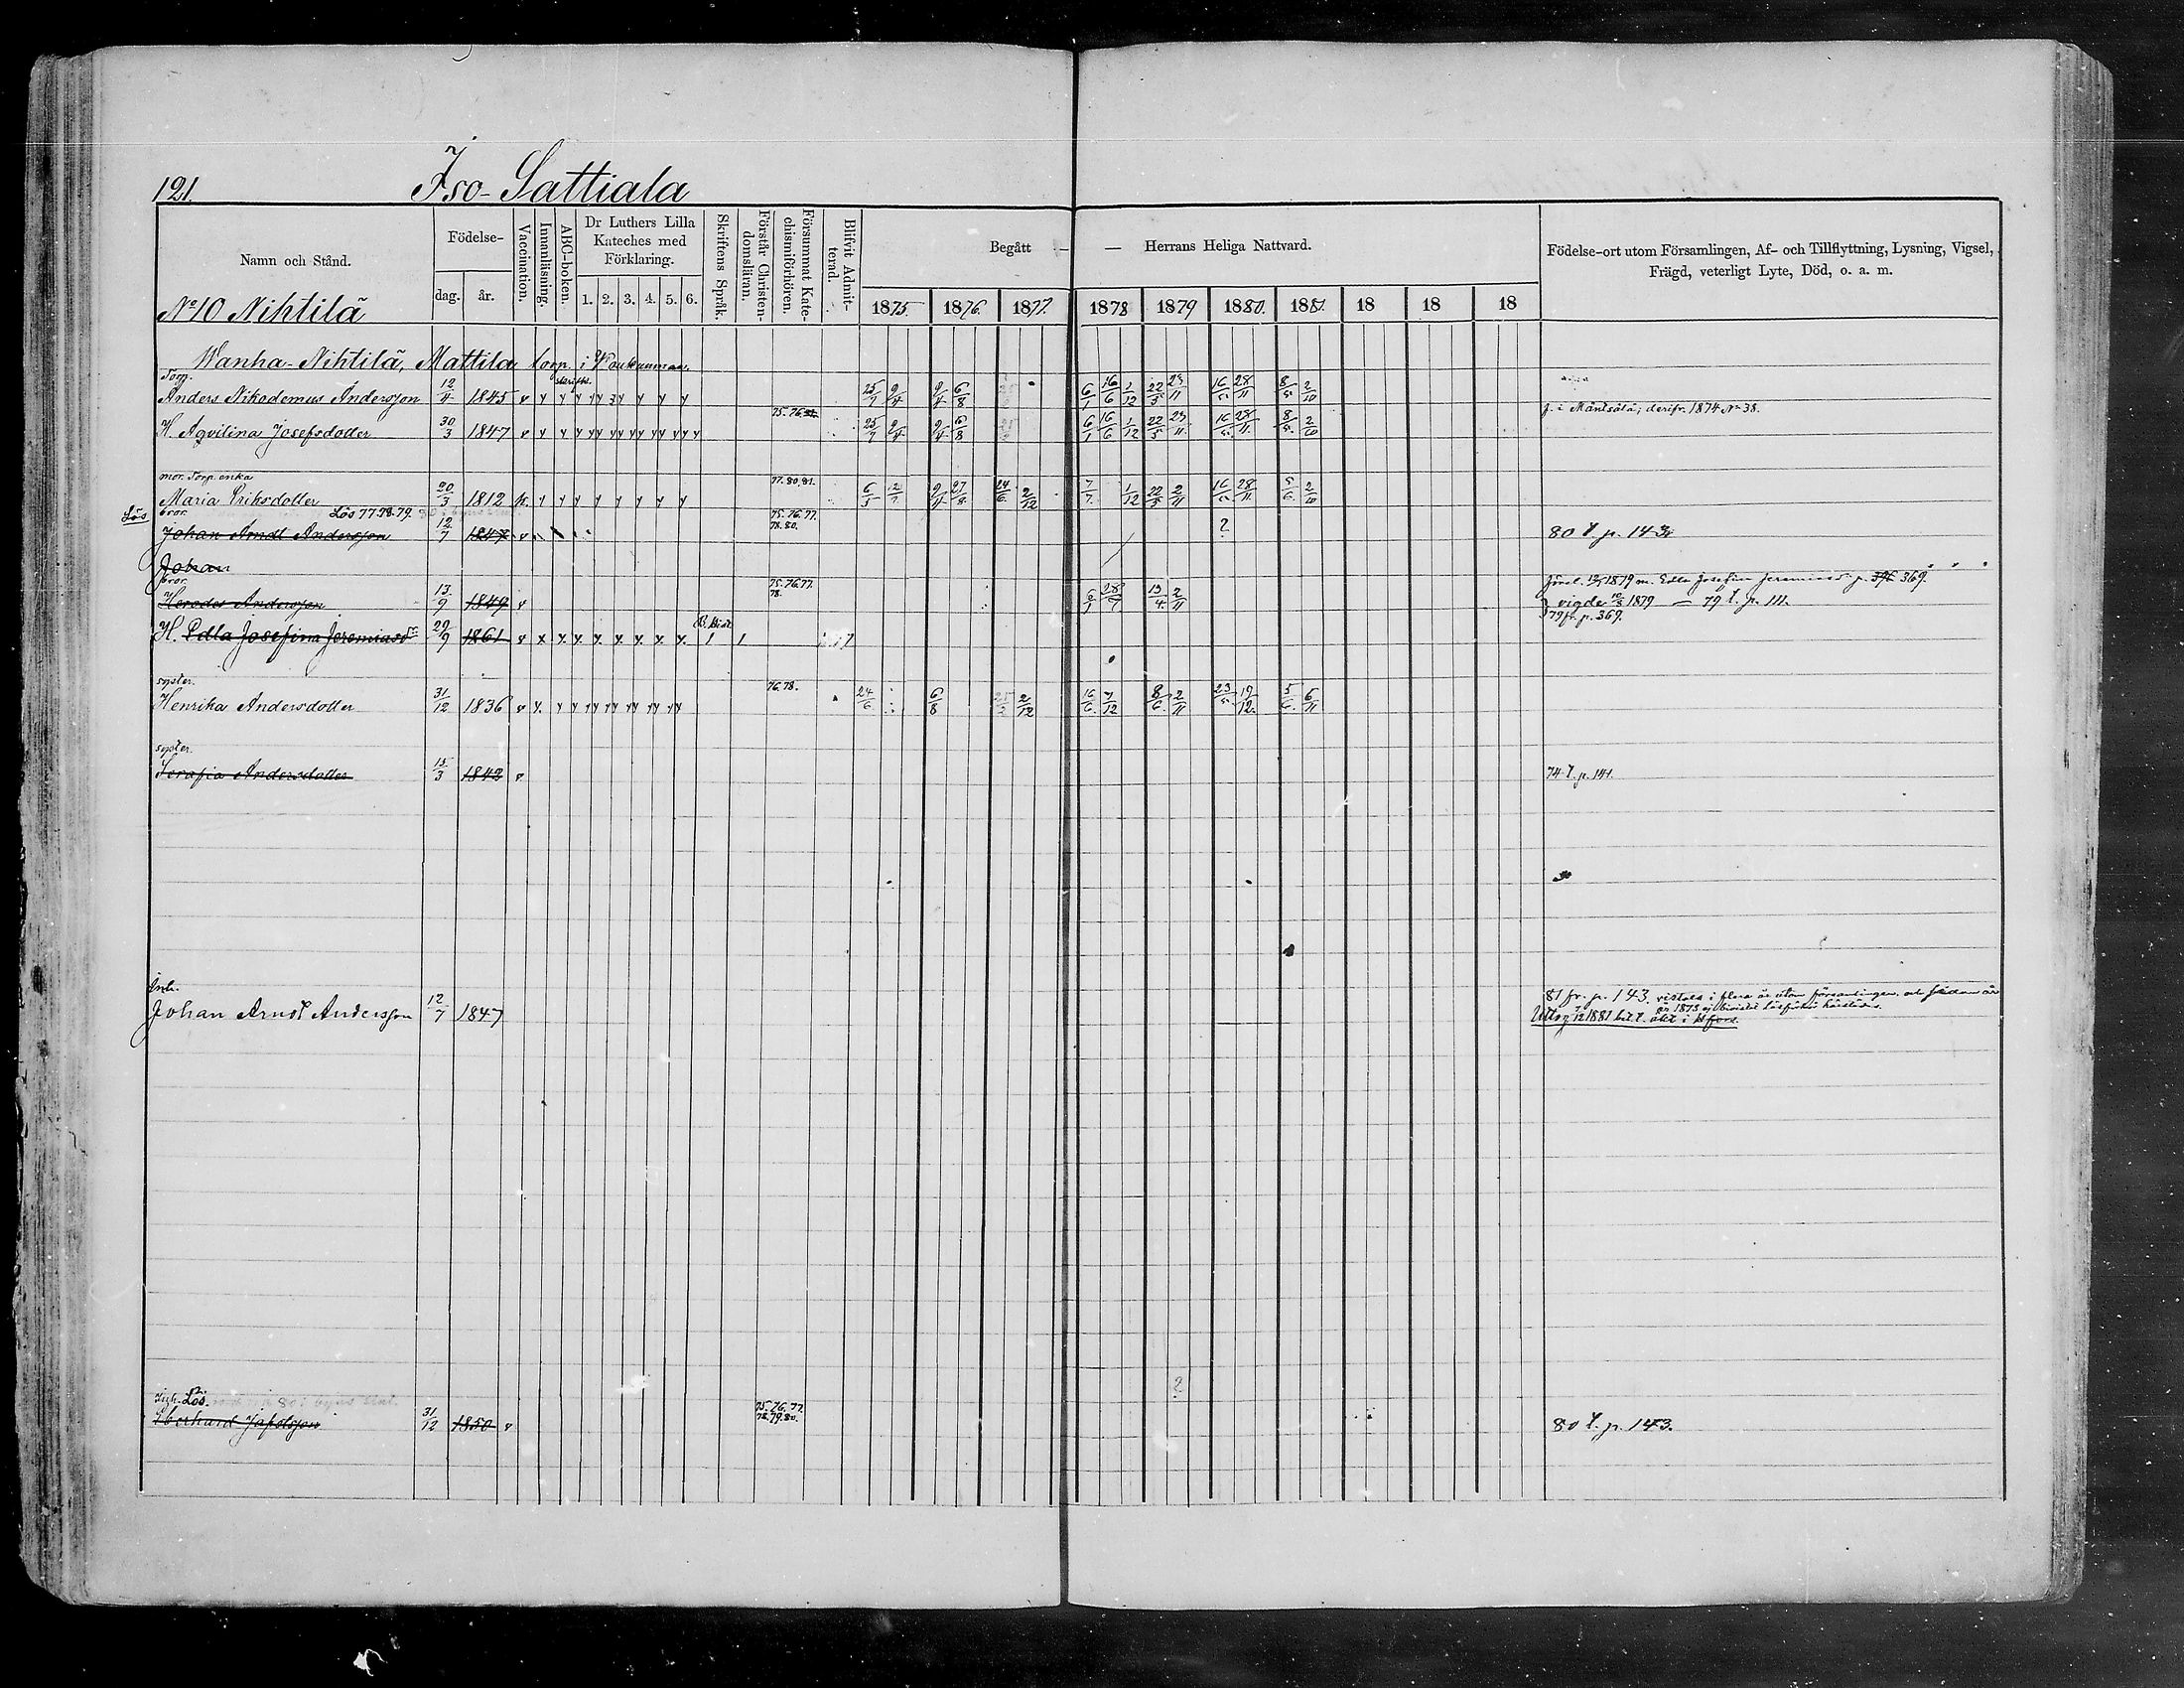 121.
Iso-Sattiala
Namn och Stånd.
Födelse-
dag.
år.
Vaccination.
Innanläsning.
ABC-boken.
Dr Luthers Lilla
Kateches med
Förklaring.
1. 2. 3. 4. 5. 6.
Skriftens Språk.
Förstår Christendomsläran.
Försummat Katechismiförhören.
Blifvit Admitterad.
Begått — — Herrans Heliga Nattvard.
1875. 1876. 1877. 1878 1879 1880. 1881. 18 18 18
Födelse-ort utom Församlingen, Af- och Tillflyttning, Lysning, Vigsel,
Frägd, veterligt Lyte, Död, o. a. m.
No 10 Nihtilä
Wanha-Nihtilä, Mattila torp. i
Torp.
Anders Nikodemus Andersson 12/4 1845 25/7 9/4 9/4 6/8 6/1 16/6 1/12 22/5 23/11 16/5 28/11 8/5 2/10
H. Aqvilina Josefsdotter 30/3 1847 75. 76. 25/7 9/4 9/4 6/8 6/1 16/6 1/12 22/5 23/11 16/5 28/11 8/5 2/10 f. i Mäntsälä; derifr. 1874 No 38.
mor. Torp. enka
Maria Eriksdotter 20/3 1812 77. 80. 81. 9/4 27/8 24/6 2/12 7/7 1/12 22/5 2/11 16/5 28/11 5/6 2/10
Lös
bror Lös 77. 78. 79.
Johan Arndt Andersson 12/7 1847 75. 76. 77. 78. 80. ? 80 t. p. 143
Johan
bror.
Herodes Andersson 13/9 1849 75. 76. 77. 78. 6/1 28/7 13/4 2/11 1879 m. Edla Josefina Jeremiasd. p. 369.
vigde 10/8 1879 — 79 t. p. 111.
H. Edla Josefina Jeremiasdr 29/9 1861 79 fr. p. 369.
syster.
Henrika Andersdotter 31/12 1836 76. 78. 24/6 6/8 25/2 2/12 16/6 7/12 8/6 2/11 23/5 19/12 5/6 6/11
syster.
Serafia Andersdotter 15/3 1842 74 t. p. 141.
Inh.
Johan Arndt Andersson 12/7 1847 81 fr. p. 143. vistats i flera år utom församlingen, och sedan år
1873 ej bivistat läsförhör härstädes.
Uttog 7/12 1881 bet. t.
Lös.
Eberhard 31/12 1850 75. 76. 77. 78. 79. 80. ? 80 t. p. 143.